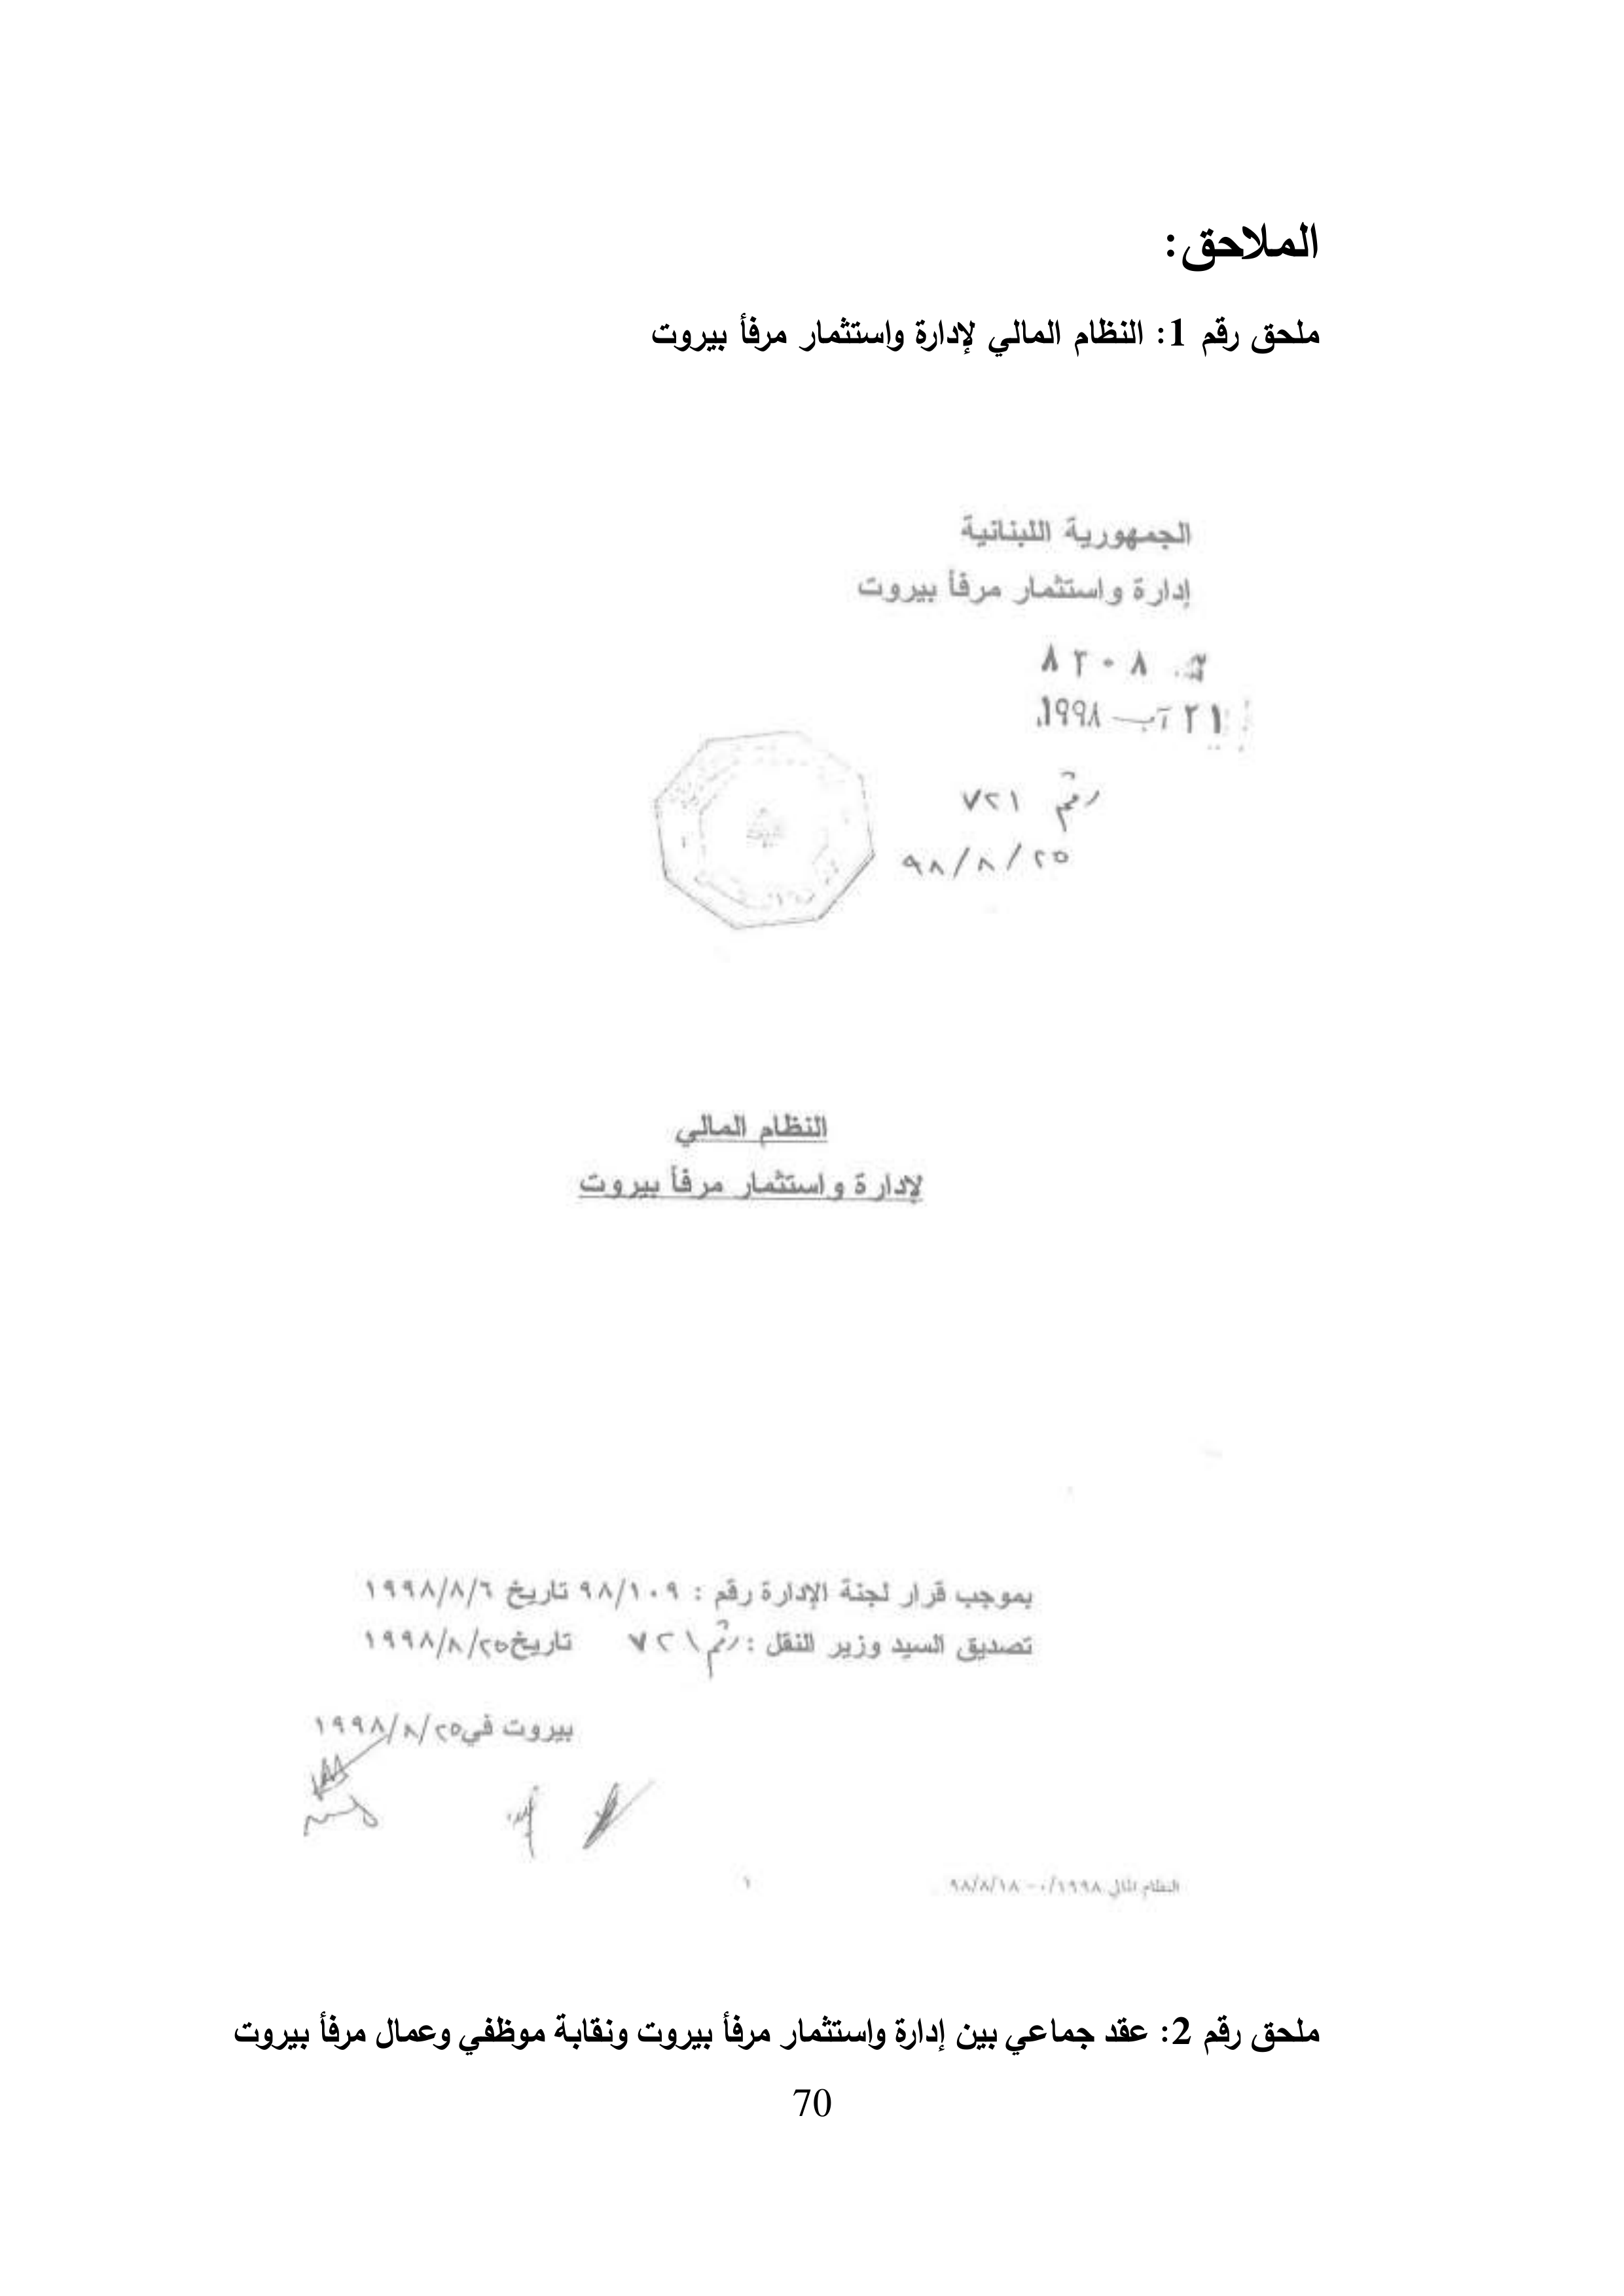 الملاحق:
ملحق رقم 1: النظام المالي لإدارة واستثمار مرفأ بيروت
الجمهورية اللبنانية
إدارة واستثمار مرفأ بيروت
٨٢٠٨
٢١ آب ١٩٩٨
رقم ٧٢١
٩٨/٨/٢٥
النظام المالي
لإدارة واستثمار مرفأ بيروت
بموجب قرار لجنة الإدارة رقم : ٩٨/١٠٩ تاريخ ١٩٩٨/٨/٦
تصديق السيد وزير النقل : رقم ٧٢١ تاريخ ١٩٩٨/٨/٢٥
بيروت في ١٩٩٨/٨/٢٥
النظام المالي ٠/١٩٩٨ - ٩٨/٨/١٨
١
ملحق رقم 2: عقد جماعي بين إدارة واستثمار مرفأ بيروت ونقابة موظفي وعمال مرفأ بيروت
70